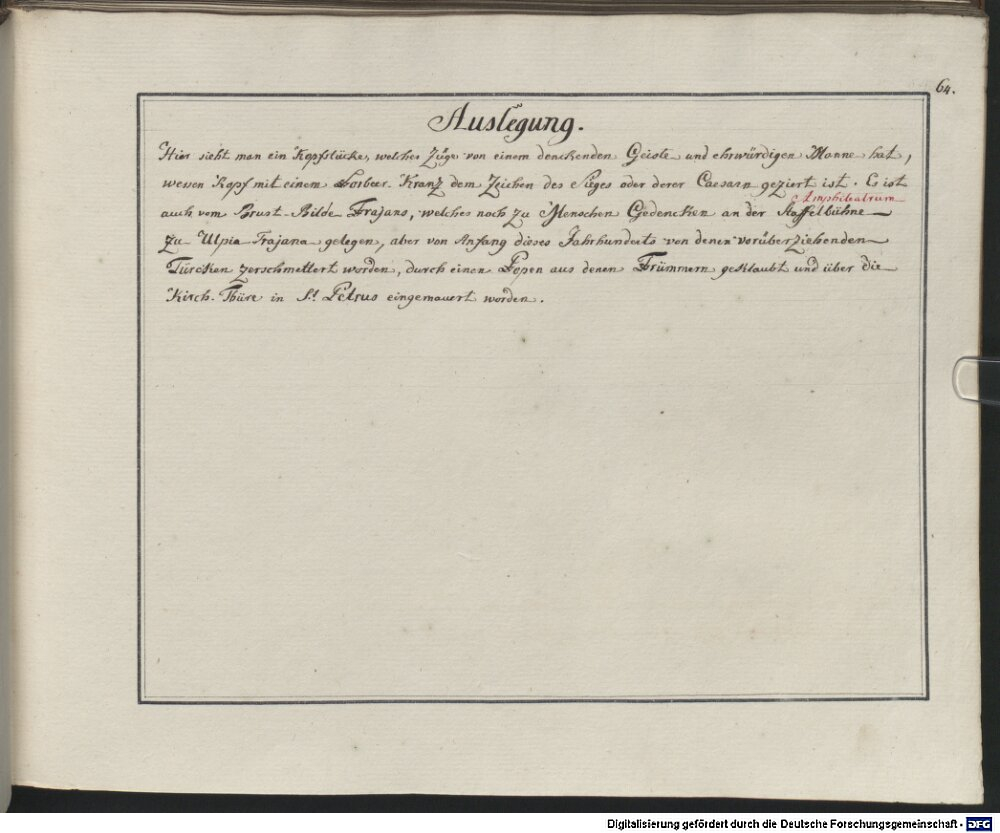 64.
Auslegung.
Hier sieht man ein Kopfstücke, welches Züge von einem denckenden Geiste und ehrwürdigen Manne hat,
wessen Kopf mit einem Lorbeer-Kranz dem Zeichen des Sieges oder derer Caesarn geziert ist. Es ist
Amphiteatrum
auch vom Brust-Bilde Trajans, welches noch zu Menschen Gedencken an der Kaffelbühne
zu Ulpia Trajana gelegen, aber von Anfang dieses Jahrhunderts von denen vorüberziehenden
Türcken zerschmettert worden, durch einen Popen aus denen Trümmern geklaubt und über die
Kirch-Thüre in St Petrus eingemauert worden.
Digitalisierung gefördert durch die Deutsche Forschungsgemeinschaft - DFG